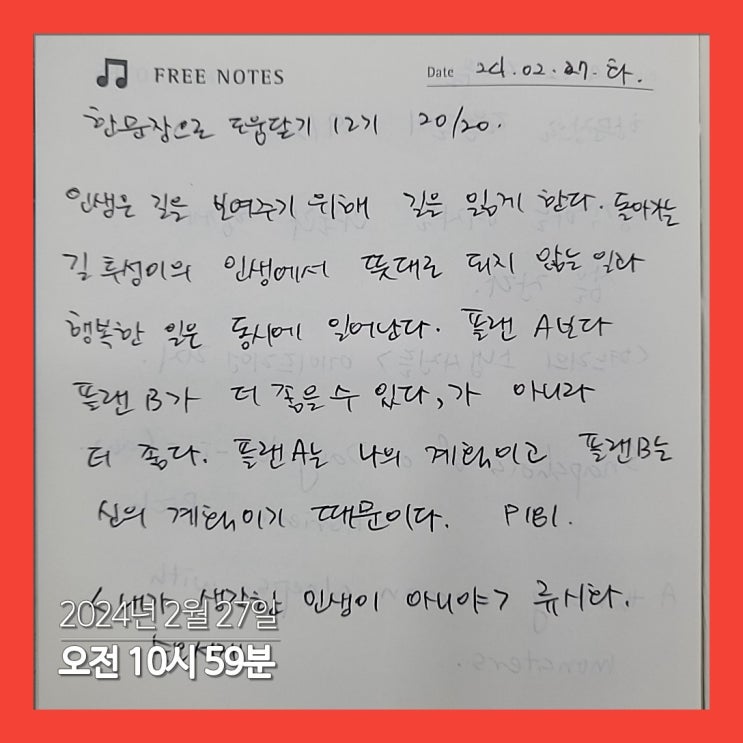 FREE NOTES
Date 24.02.27.화.
한문장으로 도움닫기 12기 20/20.
인생은 길을 보여주기 위해 길을 잃게 한다. 돌아가는
길 투성이의 인생에서 뜻대로 되지 않는 일과
행복한 일은 동시에 일어난다. 플랜 A보다
플랜 B가 더 좋을 수 있다, 가 아니라
더 좋다. 플랜A는 나의 계획이고 플랜B는
신의 계획이기 때문이다. P181.
<내가 생각한 인생이 아니야> 류시화.
2024년 2월 27일
오전 10시 59분